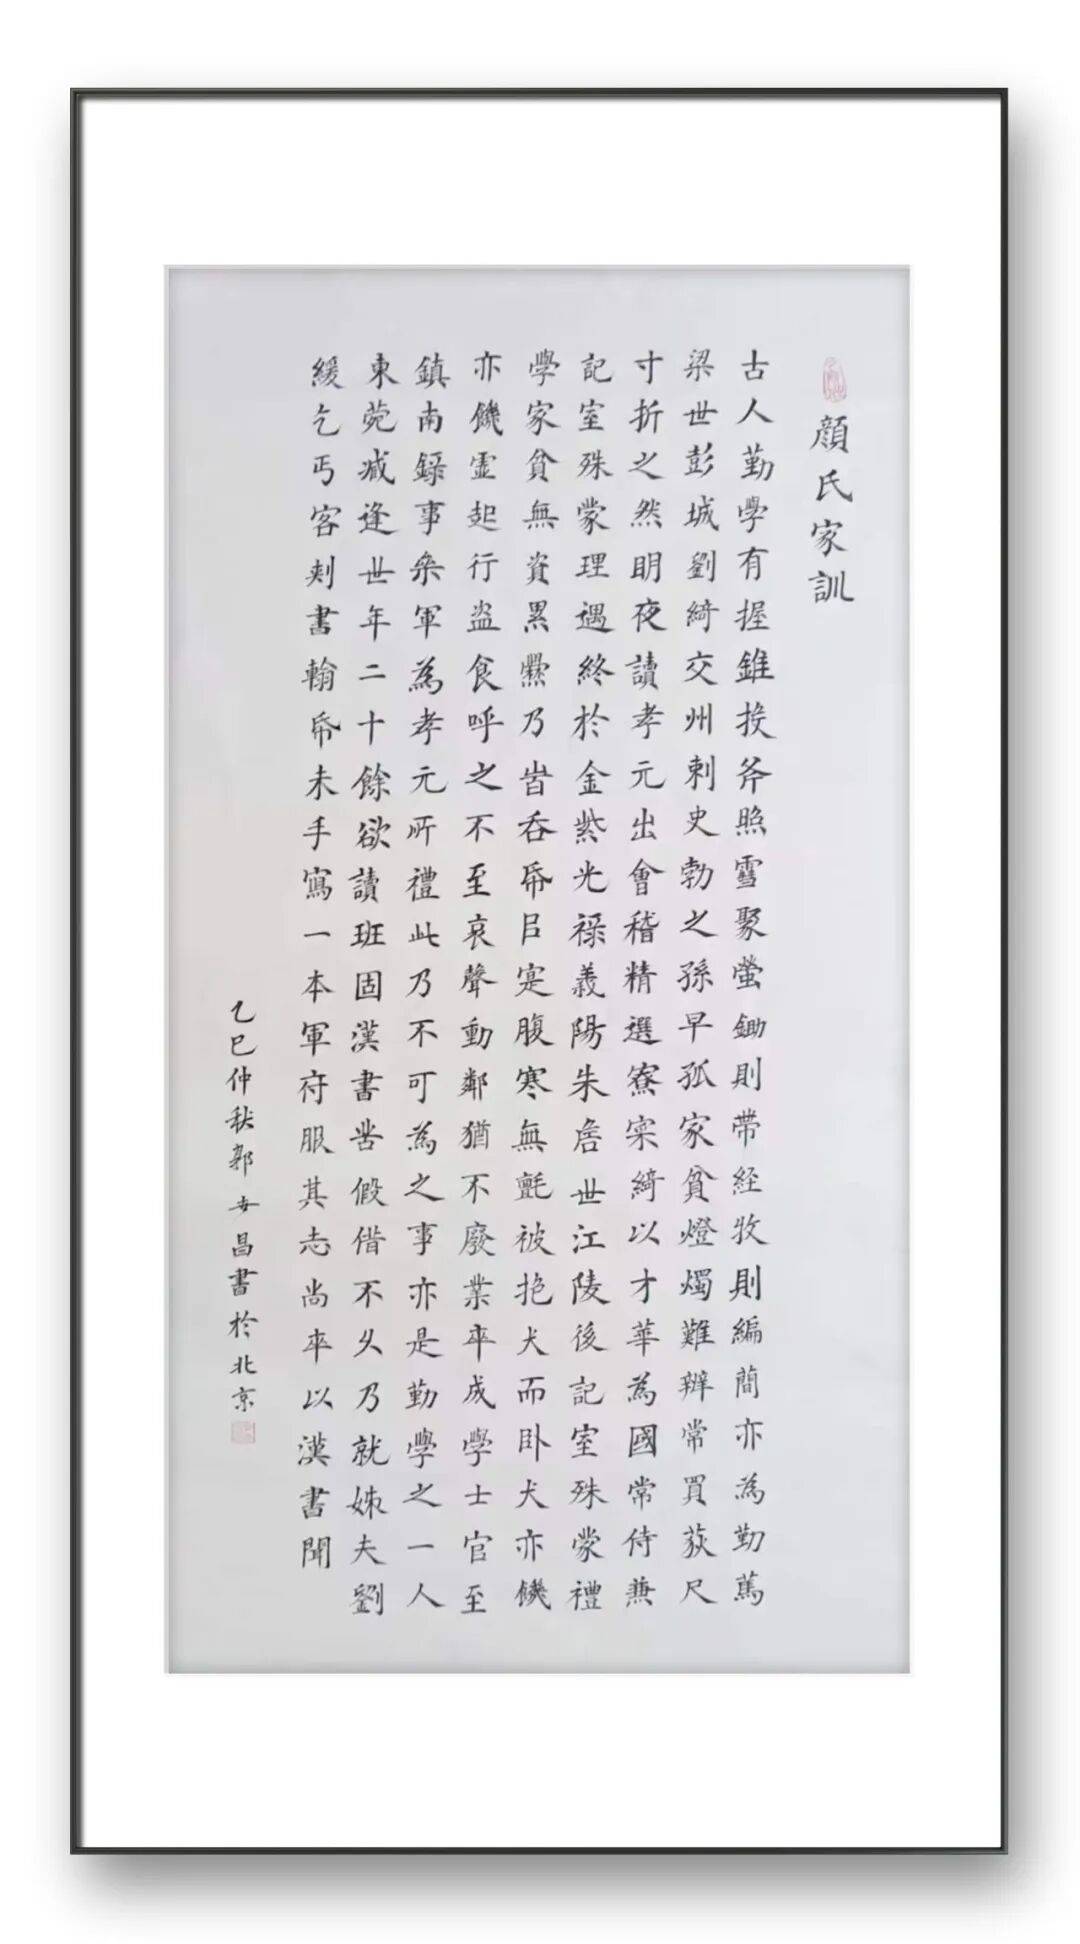 顏氏家訓
古人勤學有握錐投斧照雪聚螢鋤則帶経牧則編簡亦為勤篤
梁世彭城劉綺交州刺史勃之孫早孤家貧燈燭難辨常買荻尺
寸折之然明夜讀孝元出會稽精選寮寀綺以才華為國常侍兼
記室殊蒙理遇終於金紫光祿義陽朱詹世江陵後記室殊蒙禮
學家貧無資累爨乃旹吞帋㠯寔腹寒無氈被抱犬而卧犬亦饑
亦饑虛起行盜食呼之不至哀聲動鄰猶不廢業卒成學士官至
鎮南錄事參軍為孝元所禮此乃不可為之事亦是勤學之一人
東莞臧逢世年二十餘欲讀班固漢書苦假借不久乃就姊夫劉
緩乞丐客刺書翰帋末手寫一本軍府服其志尚卒以漢書聞
乙巳仲秋郭昌書於北京